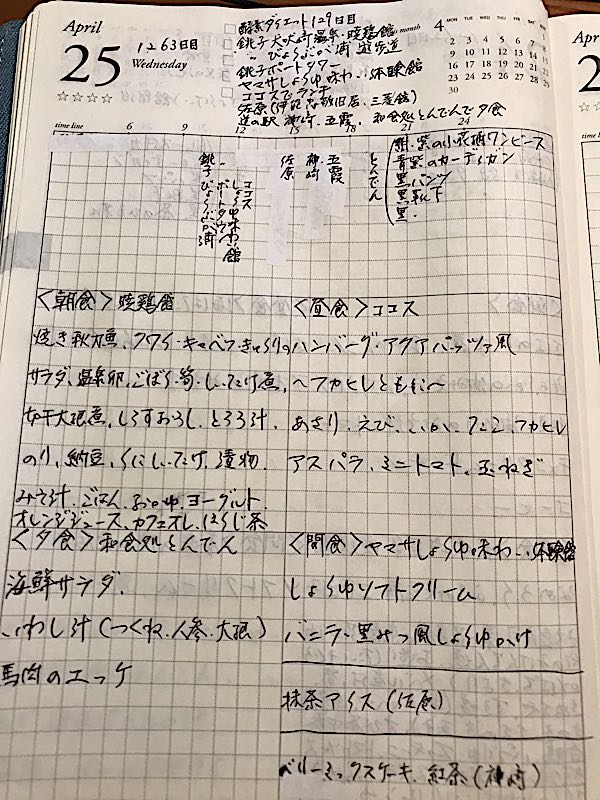 April
25
Wednesday
1263日目
☆☆☆☆
酵素ダイエット129日目
銚子犬吠崎温泉・暁鶏館
〃 びょうぶが浦 遊歩道
銚子ポートタワー
ヤマサしょうゆ味わい体験館
ココスでランチ
佐原(伊能忠敬旧居、三菱館)
道の駅 神崎、五霞、和食処とんでんで夕食
month 4
MON TUE WED THU FRI SAT
2 3 4 5 6 7
9 10 11 12 13 14
16 17 18 19 20 21
23 24 25 26 27 28
30
time line 6 9 12 15 18 21 24
銚子びょうぶが浦
ポートタワー
しょうゆ味わい館
ココス
佐原
神崎
五霞
とんでん
紺・紫の小花柄ワンピース
青紫のカーディガン
黒パンツ
黒靴下
黒.
<朝食> 暁鶏館
焼き秋刀魚、クワイ・キャベツ・きゅうりの
サラダ、温泉卵、ごぼう・筍・しいたけ煮、
切干大根煮、しらすおろし、とろろ汁、
のり、納豆、くにしいたけ、漬物、
みそ汁、ごはん、おかゆ、ヨーグルト
オレンジジュース、カフェオレ、ほうじ茶
<昼食> ココス
ハンバーグ・アクアパッツァ風
〜フカヒレとともに〜
あさり、えび、いか、たこ、フカヒレ
アスパラ、ミニトマト、玉ねぎ
<夕食> 和食処とんでん
海鮮サラダ、
いわし汁(つくね、人参、大根)
馬肉のユッケ
<間食> ヤマサしょうゆ味わい体験館
しょうゆソフトクリーム
バニラ・黒みつ風しょうゆかけ
抹茶アイス(佐原)
ベリーミックスケーキ、紅茶(神崎)
Apr